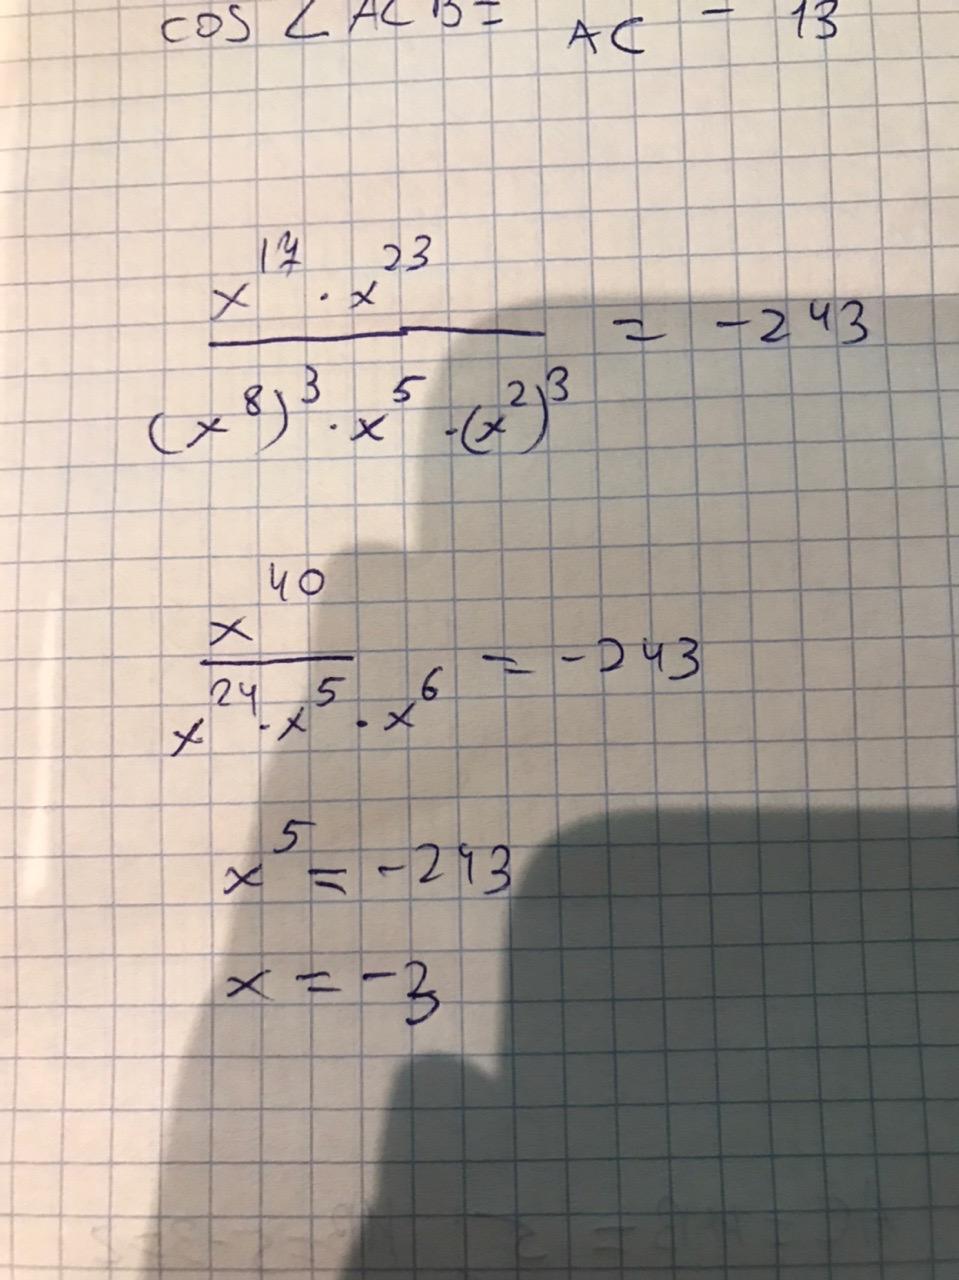 cos ∠ACB = /AC = 13
x^17 · x^23 / (x^8)^3 · x^5 · (x^2)^3 = -243
x^40 / x^24 · x^5 · x^6 = -243
x^5 = -243
x = -3